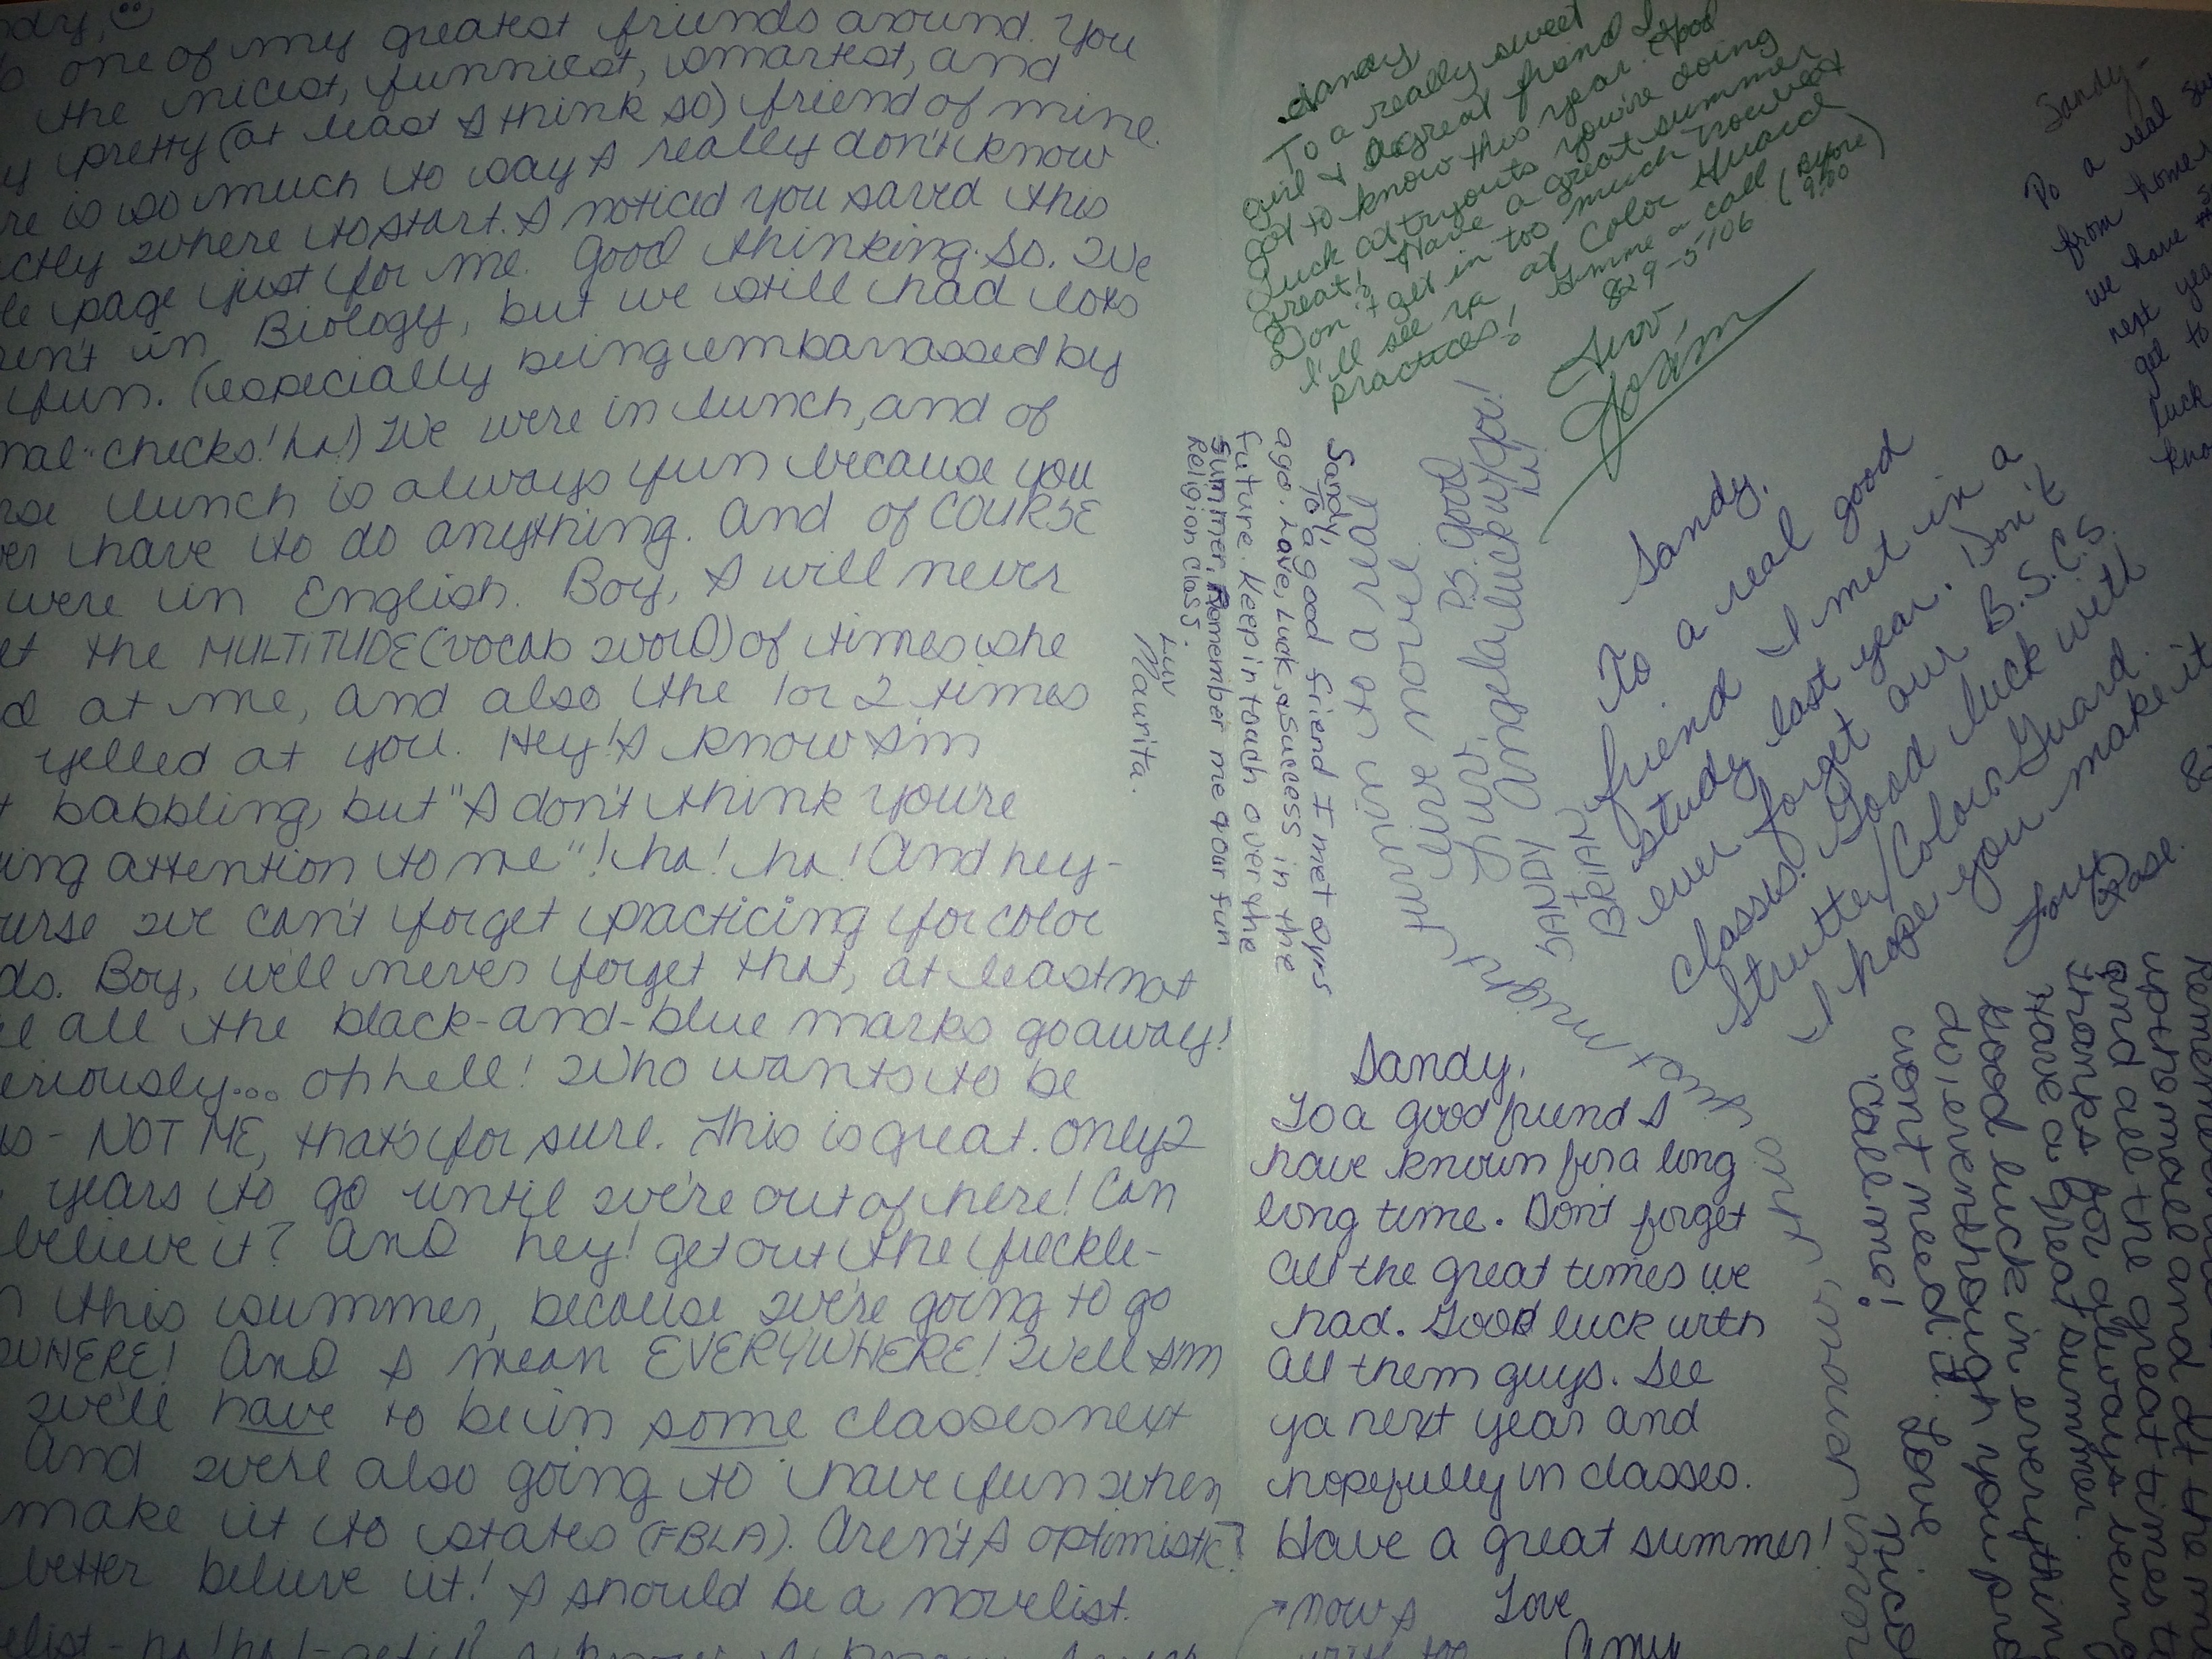 ndy,
one of my greatest friends around. You
the nicest, funniest, smartest, and
y pretty (at least I think so) friend of mine.
re is so much to say I really don't know
ctly where to start. I noticed you saved this
le page just for me. Good thinking. So, we
ren't in Biology, but we still had lots
fun. (especially being embarrassed by
nal checks! ha!) We were in lunch, and of
rse lunch is always fun because you
ver have to do anything. And of COURSE
were in English. Boy, I will never
et the MULTITUDE (vocab word) of times she
d at me, and also the 1 or 2 times
yelled at you. Hey! I know I'm
t babbling, but "I don't think you're
ing attention to me"! ha! ha! And hey-
urse we can't forget practicing for color
ds. Boy, we'll never forget that, at least not
il all the black-and-blue marks go away!
eriously... oh hell! Who wants to be
us - NOT ME, that's for sure. This is great. Only 2
years to go until we're out of here! Can
believe it? And hey! get out the freckle-
n this summer, because we're going to go
WHERE! And I mean EVERYWHERE! Well I'm
we'll have to be in some classes next
And we're also going to have fun when
make it to states (FBLA). Aren't I optimistic?
better believe it! I should be a novelist.
elist - ha! ha!
Sandy
To a really sweet
girl & a great friend I
got to know this year. Good
luck at tryouts you're doing
great! Have a great summer
Don't get in too much trouble
I'll see ya at Color Guard
practices! Gimme a call (before
829-5106 9:00)
Luv,
Joann
Sandy,
To a good friend I met 2yrs
ago. Love, Luck, & Success in the
future. Keep in touch over the
Summer. Remember me & our fun
Religion class.
Luv
Maurita.
P.S. good
luck w/you!
Luv,
Angela
SANDY
+
BRIAN
Sandy,
To a real good
friend I met in a
study last year. Don't
ever forget our B.S.C.S.
classes. Good luck with
Strutter/Color Guard.
I hope you make it
Love
Rose.
Sandy-
To a real
from home
we have
next yea
get to
luck
kno
Sandy,
To a good friend I
have known for a long
long time. Don't forget
all the great times we
had. Good luck with
all them guys. See
ya next year and
hopefully in classes.
Have a great summer!
Love
Amy
now I
up the mall and at the
and all the great times
thanks for always being
Have a great summer.
Good luck in everything
do, even though you
won't need it. Love
Call me! Nico